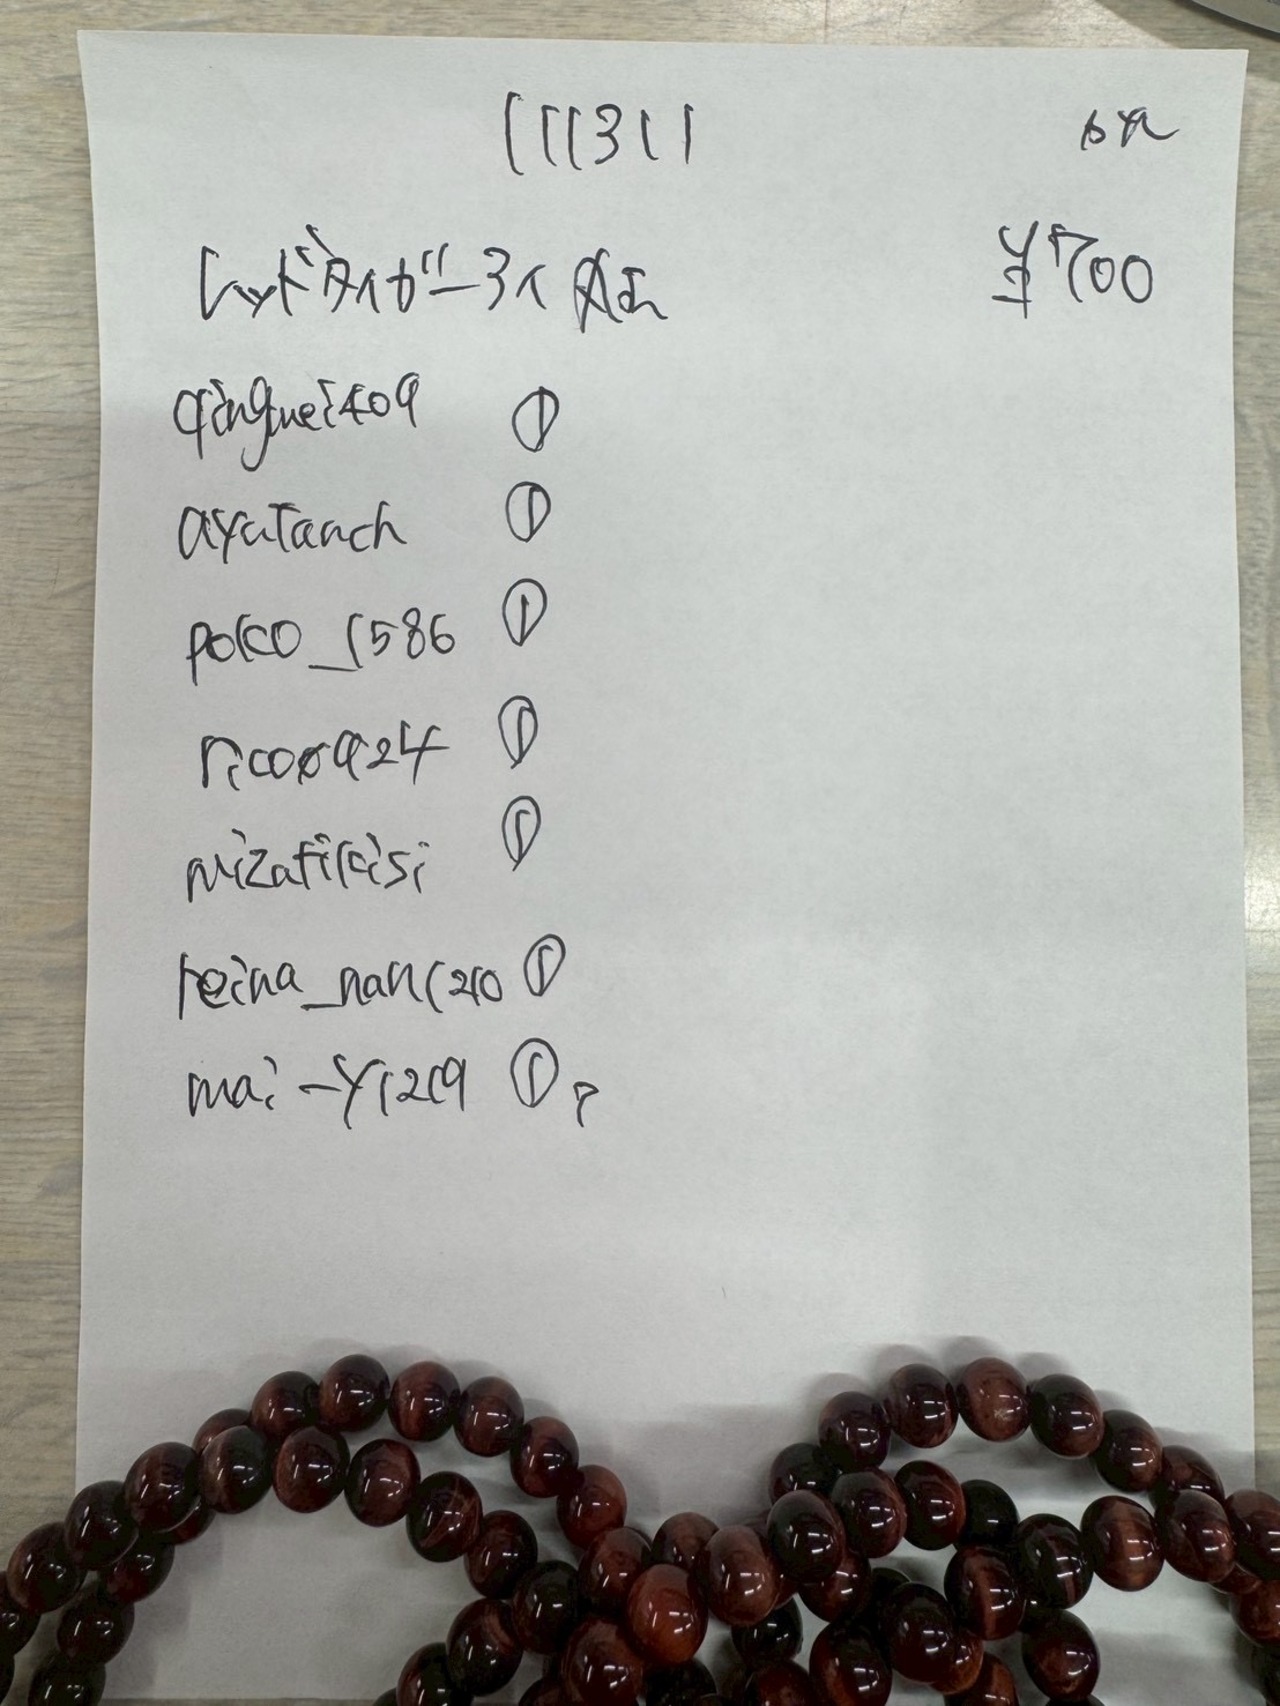 111311
¥700
レッドタイガーアイ
qinguei409 ①
ayatanch ①
poko_1586 ①
ricoo924 ①
mizatikisi ①
reina_nan1210 ①
mai-y1219 ①